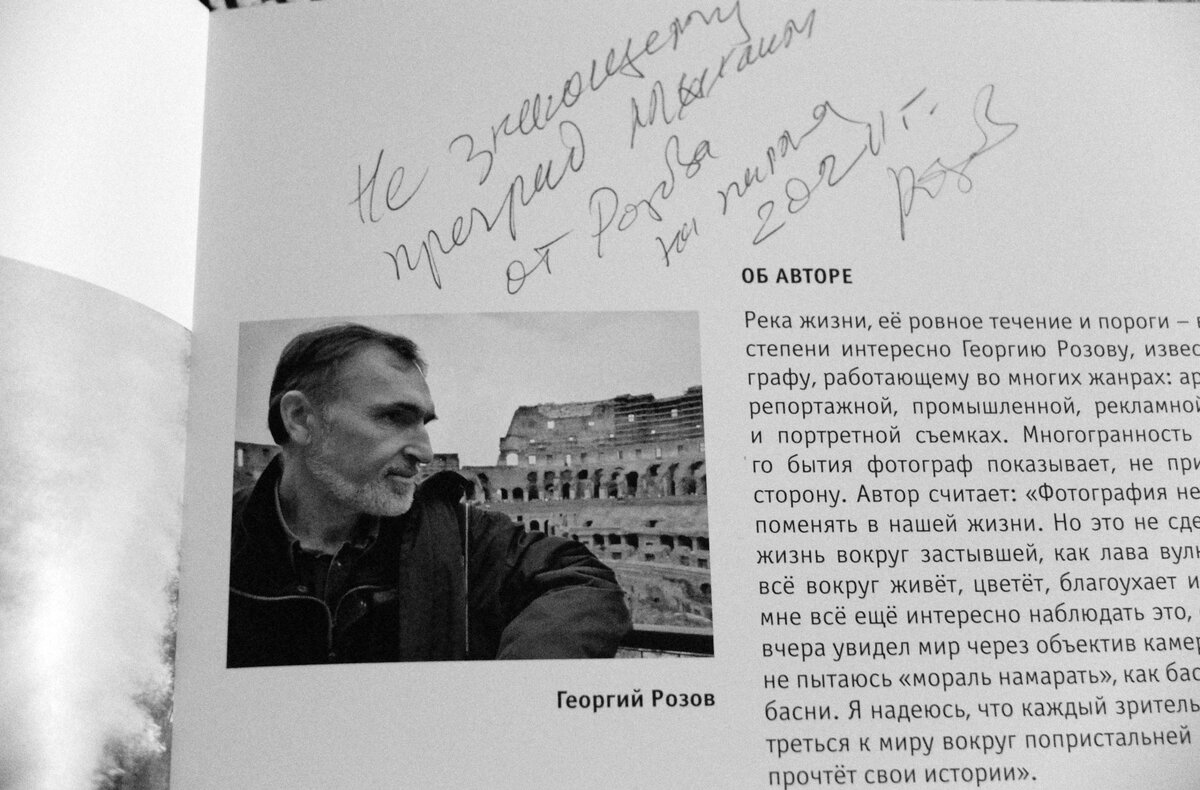 Не знающему
преград Михаилу
от Розова
на память
2021 г.
Розов
ОБ АВТОРЕ
Река жизни, её ровное течение и пороги –
степени интересно Георгию Розову, извес
графу, работающему во многих жанрах: ар
репортажной, промышленной, рекламной
и портретной съемках. Многогранность
го бытия фотограф показывает, не при
сторону. Автор считает: «Фотография не
поменять в нашей жизни. Но это не сде
жизнь вокруг застывшей, как лава вул
всё вокруг живёт, цветёт, благоухает и
мне всё ещё интересно наблюдать это,
вчера увидел мир через объектив каме
не пытаюсь «мораль намарать», как бас
басни. Я надеюсь, что каждый зритель
треться к миру вокруг попристальней
прочтёт свои истории».
Георгий Розов